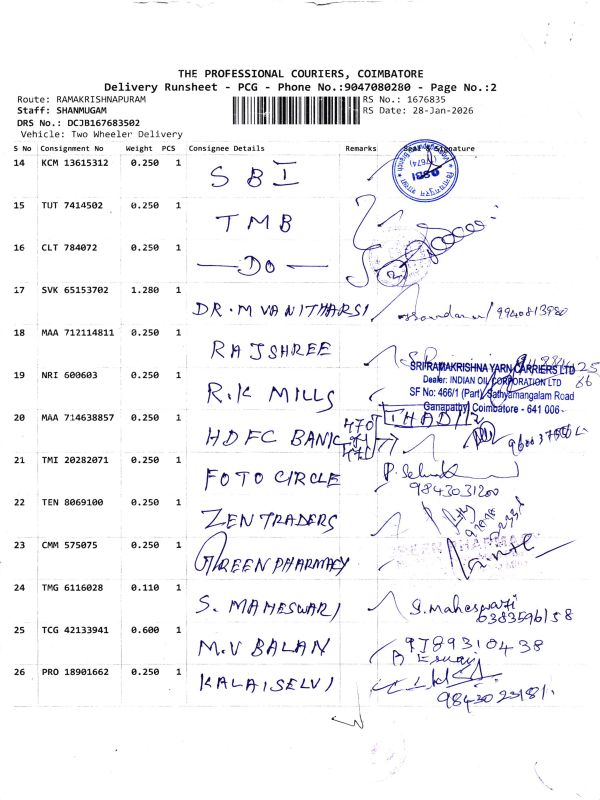 THE PROFESSIONAL COURIERS, COIMBATORE
Delivery Runsheet - PCG - Phone No.:9047080280 - Page No.:2
Route: RAMAKRISHNAPURAM
RS No.: 1676835
Staff: SHANMUGAM
RS Date: 28-Jan-2026
DRS No.: DCJB167683502
Vehicle: Two Wheeler Delivery
S No Consignment No Weight PCS Consignee Details Remarks Seal & Signature
14 KCM 13615312 0.250 1 SBI
15 TUT 7414502 0.250 1 TMB
16 CLT 784072 0.250 1 — DO —
17 SVK 65153702 1.280 1 DR. M VANITHARSI
18 MAA 712114811 0.250 1 RAJSHREE
SRI RAMAKRISHNA YARN CARRIERS LTD
Dealer: INDIAN OIL CORPORATION LTD
SF No: 466/1 (Part) Sathyamangalam Road
Ganapathy Coimbatore - 641 006
19 NRI 600603 0.250 1 R.K MILLS
20 MAA 714638857 0.250 1 HDFC BANK
21 TMI 20282071 0.250 1 FOTO CIRCLE
9843031200
22 TEN 8069100 0.250 1 ZEN TRADERS
23 CMM 575075 0.250 1 GREEN PHARMACY
24 TMG 6116028 0.110 1 S. MAHESWARI S. Maheswari
6383596158
25 TCG 42133941 0.600 1 M.V BALAN 9789310438
26 PRO 18901662 0.250 1 KALAISELVI
9843023181.